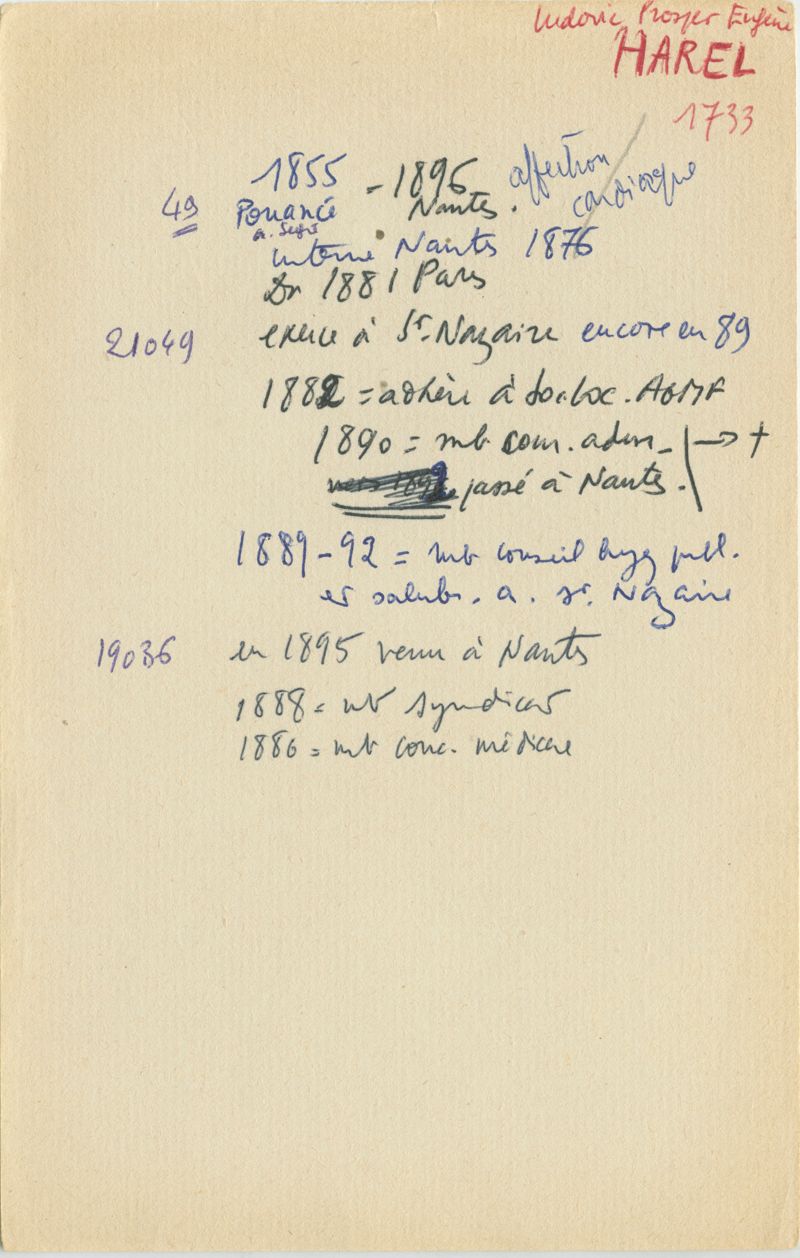 Ludovic Prosper Eugène
HAREL
1733
1855 - 1896 affection
49 Pouancé Nantes. cardiaque
a. Segré
interne Nantes 1876
Dr 1881 Paris
21049 exerce à St-Nazaire encore en 89
1882 = adhère à soc. loc. AGMF
1890 = mb com. adm. → +
vers 1892 passé à Nantes.
1889-92 = mb conseil hyg publ.
et salubr. a. St. Nazaire
19036 en 1895 venu à Nantes
1888 = mb syndicat
1886 = mb conc. médicale